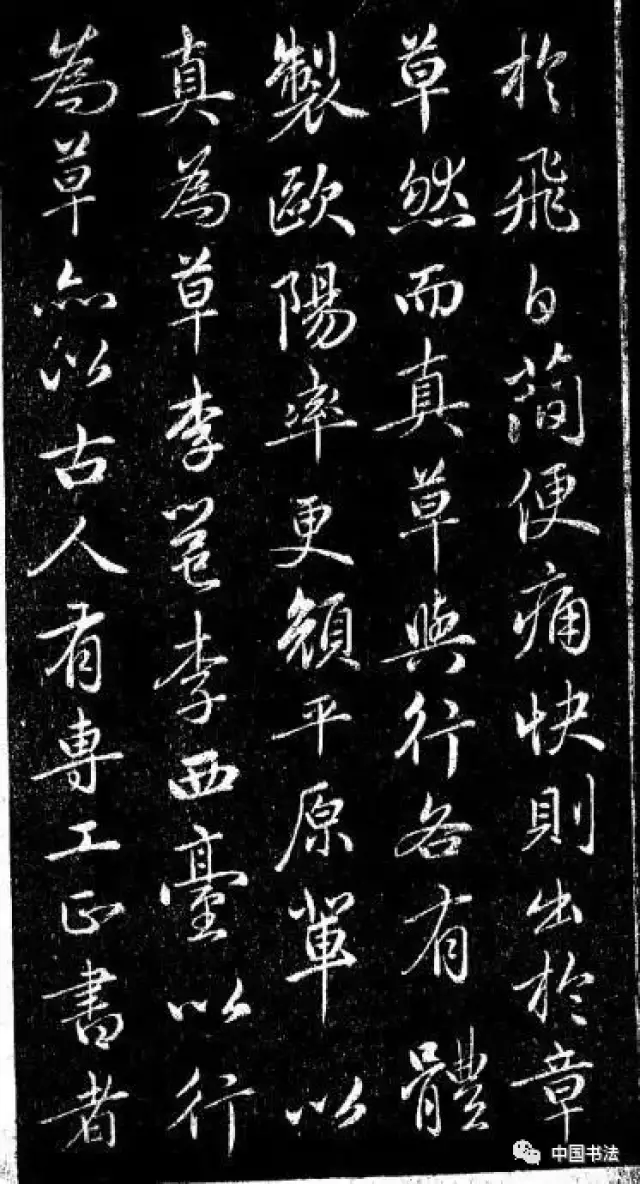 於飛白簡便痛快則出於章
草然而真草與行各有體
製歐陽率更顏平原輩以
真為草李邕李西臺以行
為草亦以古人有專工正書者
中国书法